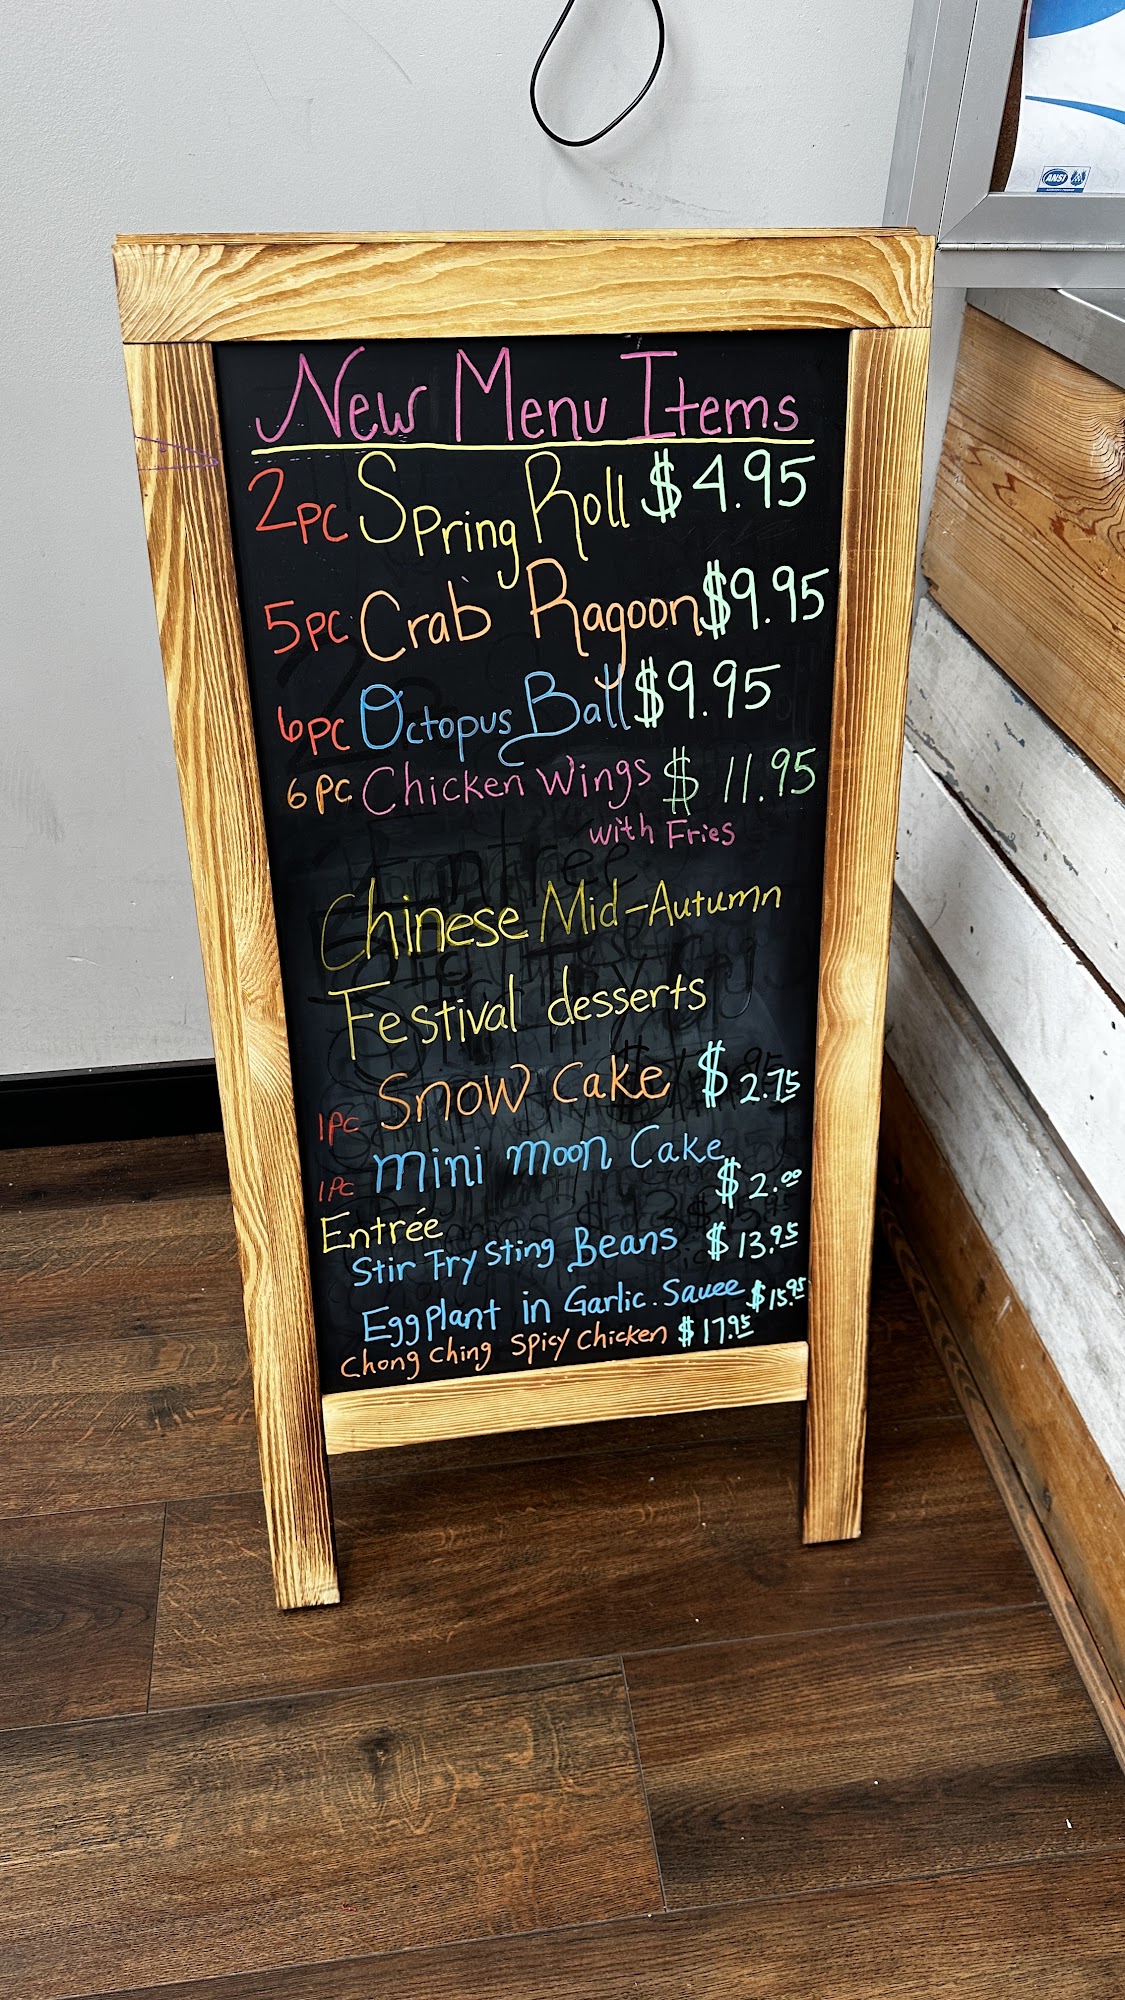 ANSI
New Menu Items
2PC Spring Roll $4.95
5PC Crab Ragoon $9.95
6PC Octopus Ball $9.95
6PC Chicken Wings $11.95
with Fries
Chinese Mid-Autumn
Festival desserts
1PC Snow Cake $2.75
1PC mini moon Cake
$2.00
Entrée
Stir Fry Sting Beans $13.95
EggPlant in Garlic. Sauce $15.95
Chong Ching Spicy Chicken $17.95